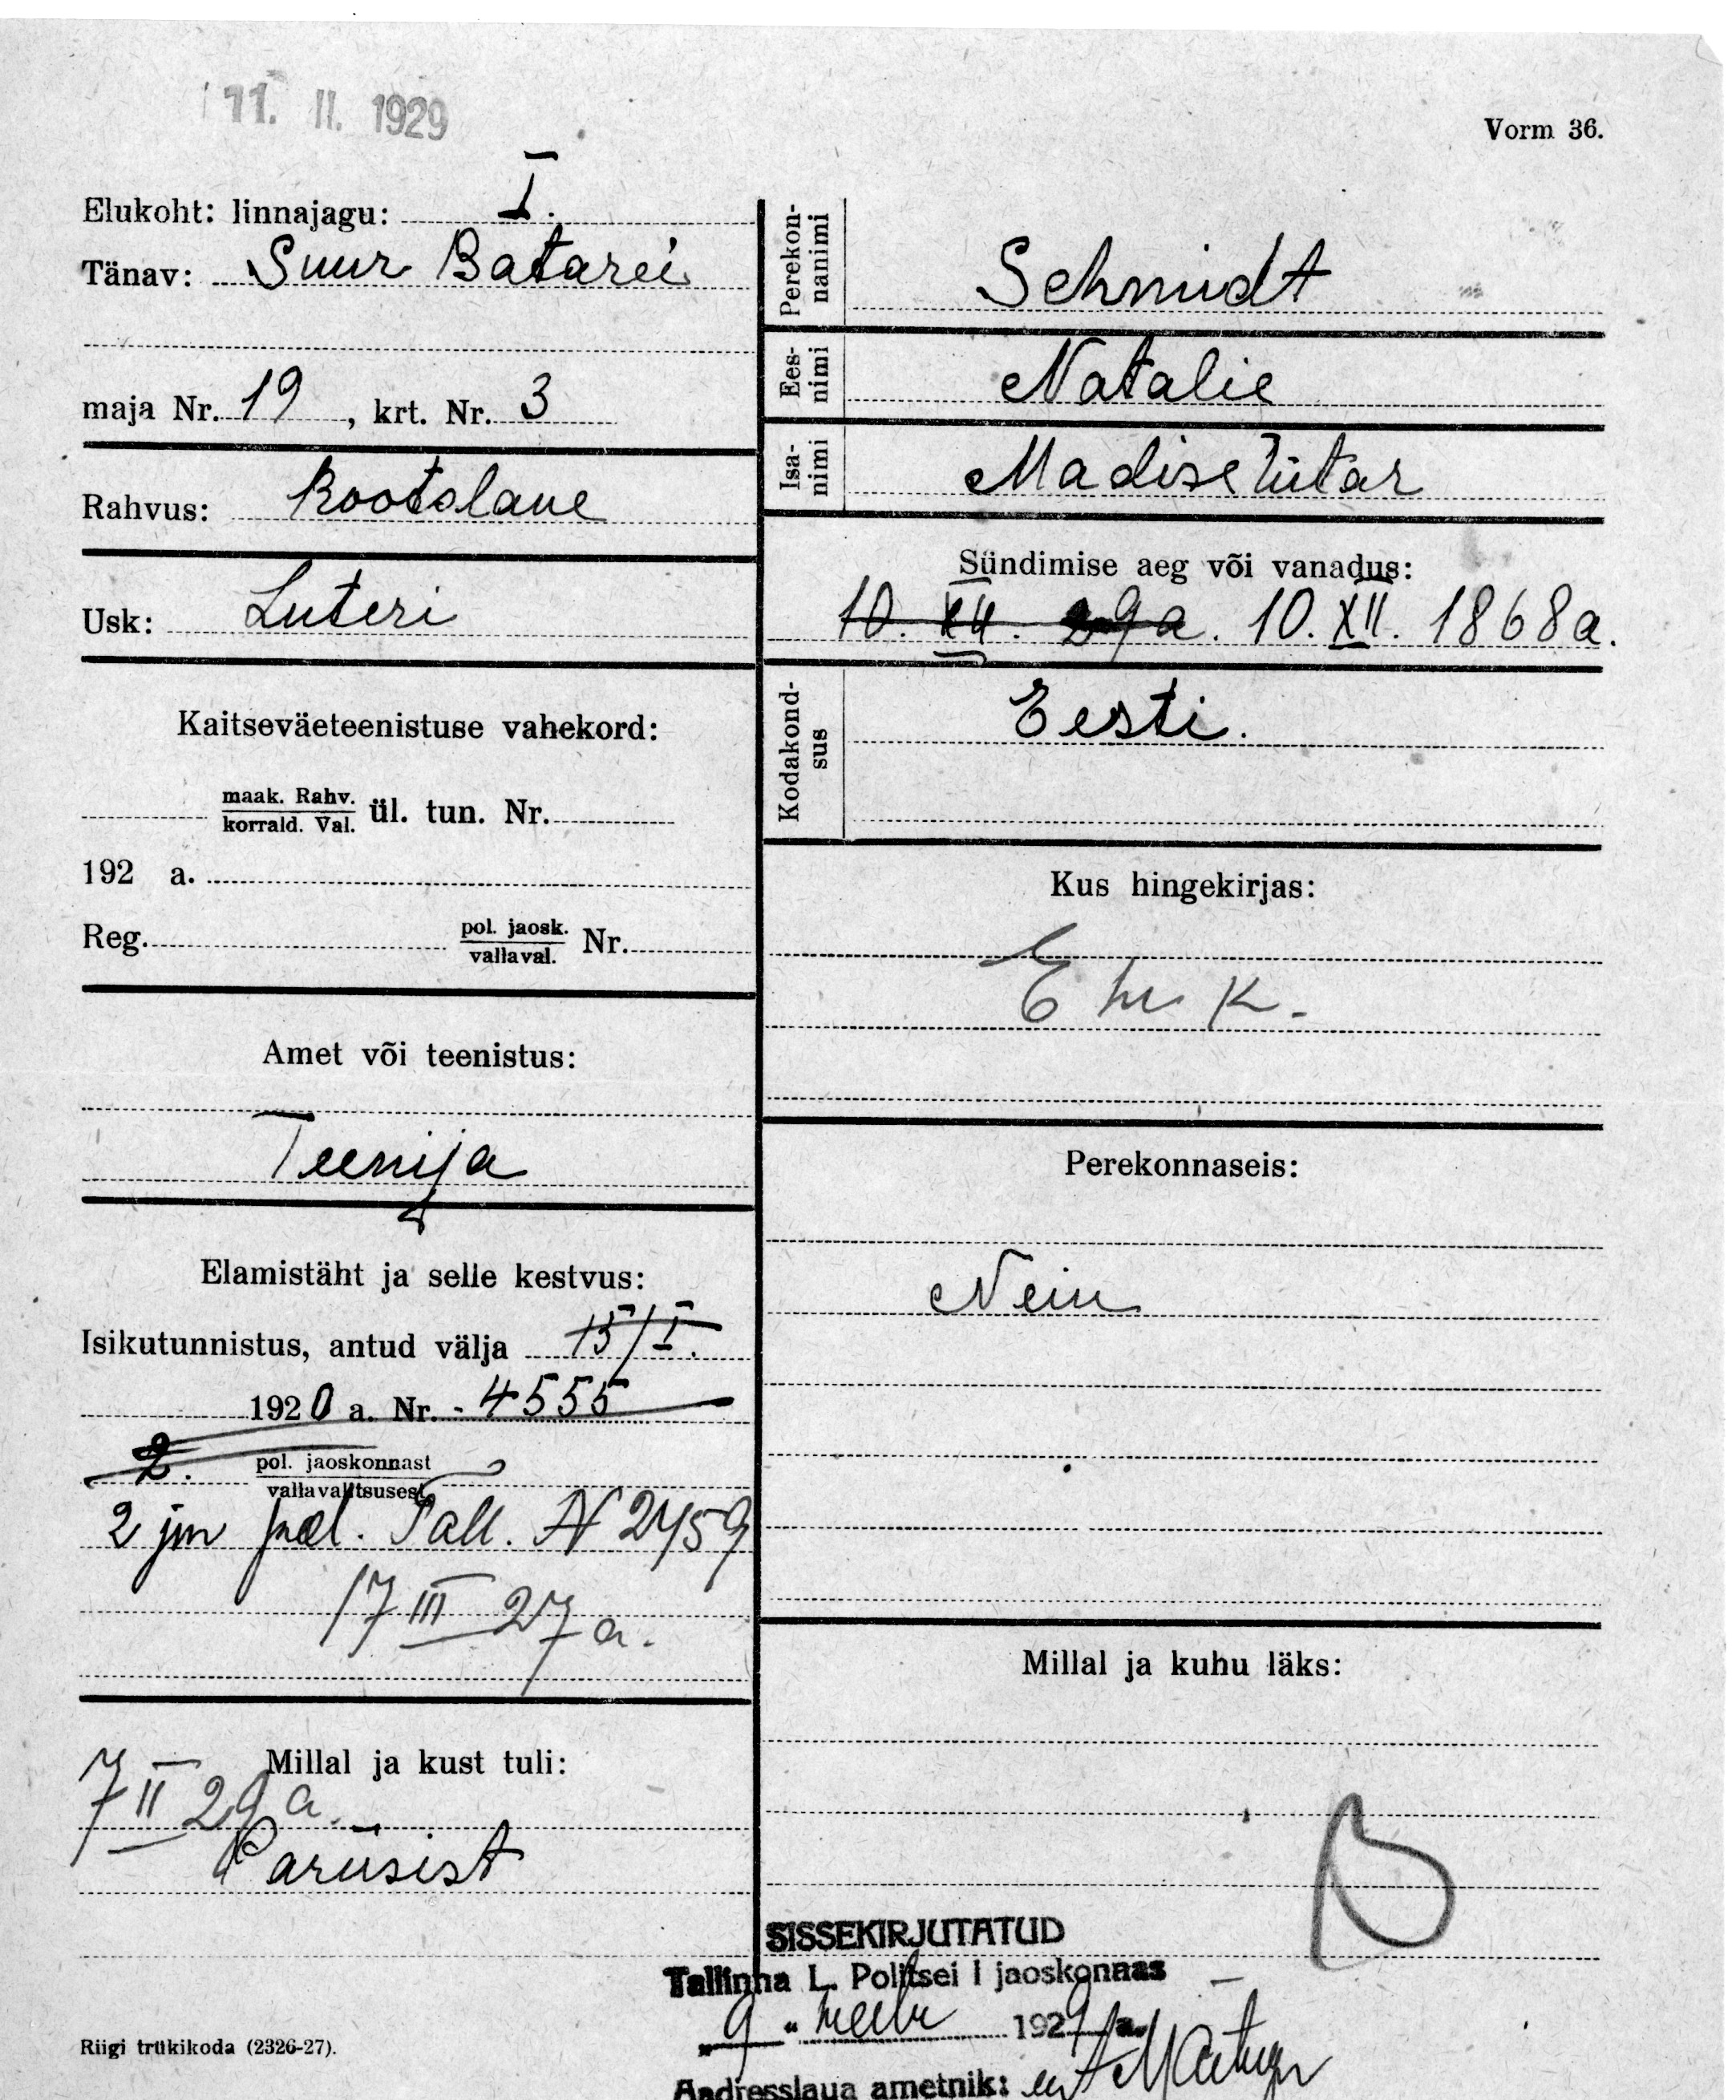 11. II. 1929
Vorm 36.
Elukoht: linnajagu: I.
Tänav: Suur Batarei
maja Nr. 19, krt. Nr. 3
Rahvus: Rootslane
Usk: Luteri
Kaitseväeteenistuse vahekord:
maak. Rahv.
korrald. Val. ül. tun. Nr.
192 a.
Reg. pol. jaosk.
vallaval. Nr.
Amet või teenistus:
Teenija
Elamistäht ja selle kestvus:
Isikutunnistus, antud välja 15/I.
1920 a. Nr. 4555
2. pol. jaoskonnast
vallavalitsusest
2 jm pol. Tall. N 2459
17 III 27 a.
Millal ja kust tuli:
7 II 29 a.
Pariisist
Riigi trükikoda (2326-27).
Perekon-
nanimi
Schmidt
Ees-
nimi
Natalie
Isa-
nimi
Madise tütar
Sündimise aeg või vanadus:
10. XII. 29 a. 10. XII. 1868 a.
Kodakond-
sus
Eesti.
Kus hingekirjas:
Perekonnaseis:
Neiu
Millal ja kuhu läks:
B
SISSEKIRJUTATUD
Tallinna L. Politsei I jaoskonnas
"9" 1929 a.
Aadresslaua ametnik: